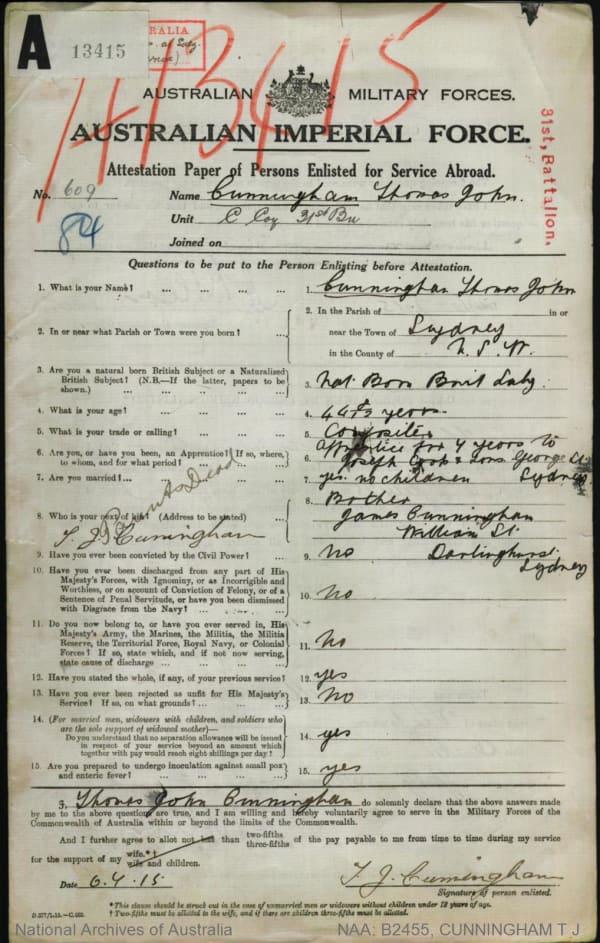 A
13415
13415
AUSTRALIAN MILITARY FORCES.
AUSTRALIAN IMPERIAL FORCE.
Attestation Paper of Persons Enlisted for Service Abroad.
31st, Battallon.
No. 609 Name Cunningham Thomas John.
84
Unit C Coy 31st Bn
Joined on
Questions to be put to the Person Enlisting before Attestation.
1. What is your Name? ... ... ... ... 1. Cunningham Thomas John
2. In or near what Parish or Town were you born? ... 2. In the Parish of in or
near the Town of Sydney
in the County of N.S.W.
3. Are you a natural born British Subject or a Naturalised British Subject? (N.B.—If the latter, papers to be shown.) ... ... ... ... 3. Nat. Born Brit Subj.
4. What is your age? ... ... ... ... 4. 44 years.
5. What is your trade or calling? ... ... ... 5. Compositer
6. Are you, or have you been, an Apprentice? If so, where, to whom, and for what period? ... ... 6. Apprentice for 4 years to
Joseph Cook & Sons George St.
7. Are you married? ... ... ... ... 7. yes. no children Sydney
Parents Dead
8. Who is your next of kin? (Address to be stated) ... 8. Brother
James Cunningham
William St
T. J. Cunningham
Darlinghurst.
Sydney
9. Have you ever been convicted by the Civil Power? ... 9. No
10. Have you ever been discharged from any part of His Majesty's Forces, with Ignominy, or as Incorrigible and Worthless, or on account of Conviction of Felony, or of a Sentence of Penal Servitude, or have you been dismissed with Disgrace from the Navy? ... 10. No
11. Do you now belong to, or have you ever served in, His Majesty's Army, the Marines, the Militia, the Militia Reserve, the Territorial Force, Royal Navy, or Colonial Forces? If so, state which, and if not now serving, state cause of discharge ... ... ... ... 11. No
12. Have you stated the whole, if any, of your previous service? 12. yes
13. Have you ever been rejected as unfit for His Majesty's Service? If so, on what grounds? ... ... 13. No
14. (For married men, widowers with children, and soldiers who are the sole support of widowed mother)—
Do you understand that no separation allowance will be issued in respect of your service beyond an amount which together with pay would reach eight shillings per day? 14. yes
15. Are you prepared to undergo inoculation against small pox and enteric fever? ... ... ... ... 15. yes
I, Thomas John Cunningham do solemnly declare that the above answers made
by me to the above questions are true, and I am willing and hereby voluntarily agree to serve in the Military Forces of the
Commonwealth of Australia within or beyond the limits of the Commonwealth.
And I further agree to allot not less than two-fifths three-fifths of the pay payable to me from time to time during my service
for the support of my wife.*† wife and children.
Date 6.4.15. T. J. Cunningham
Signature of person enlisted.
*This clause should be struck out in the case of unmarried men or widowers without children under 18 years of age.
† Two-fifths must be allotted to the wife, and if there are children three-fifths must be allotted.
National Archives of Australia NAA: B2455, CUNNINGHAM T J